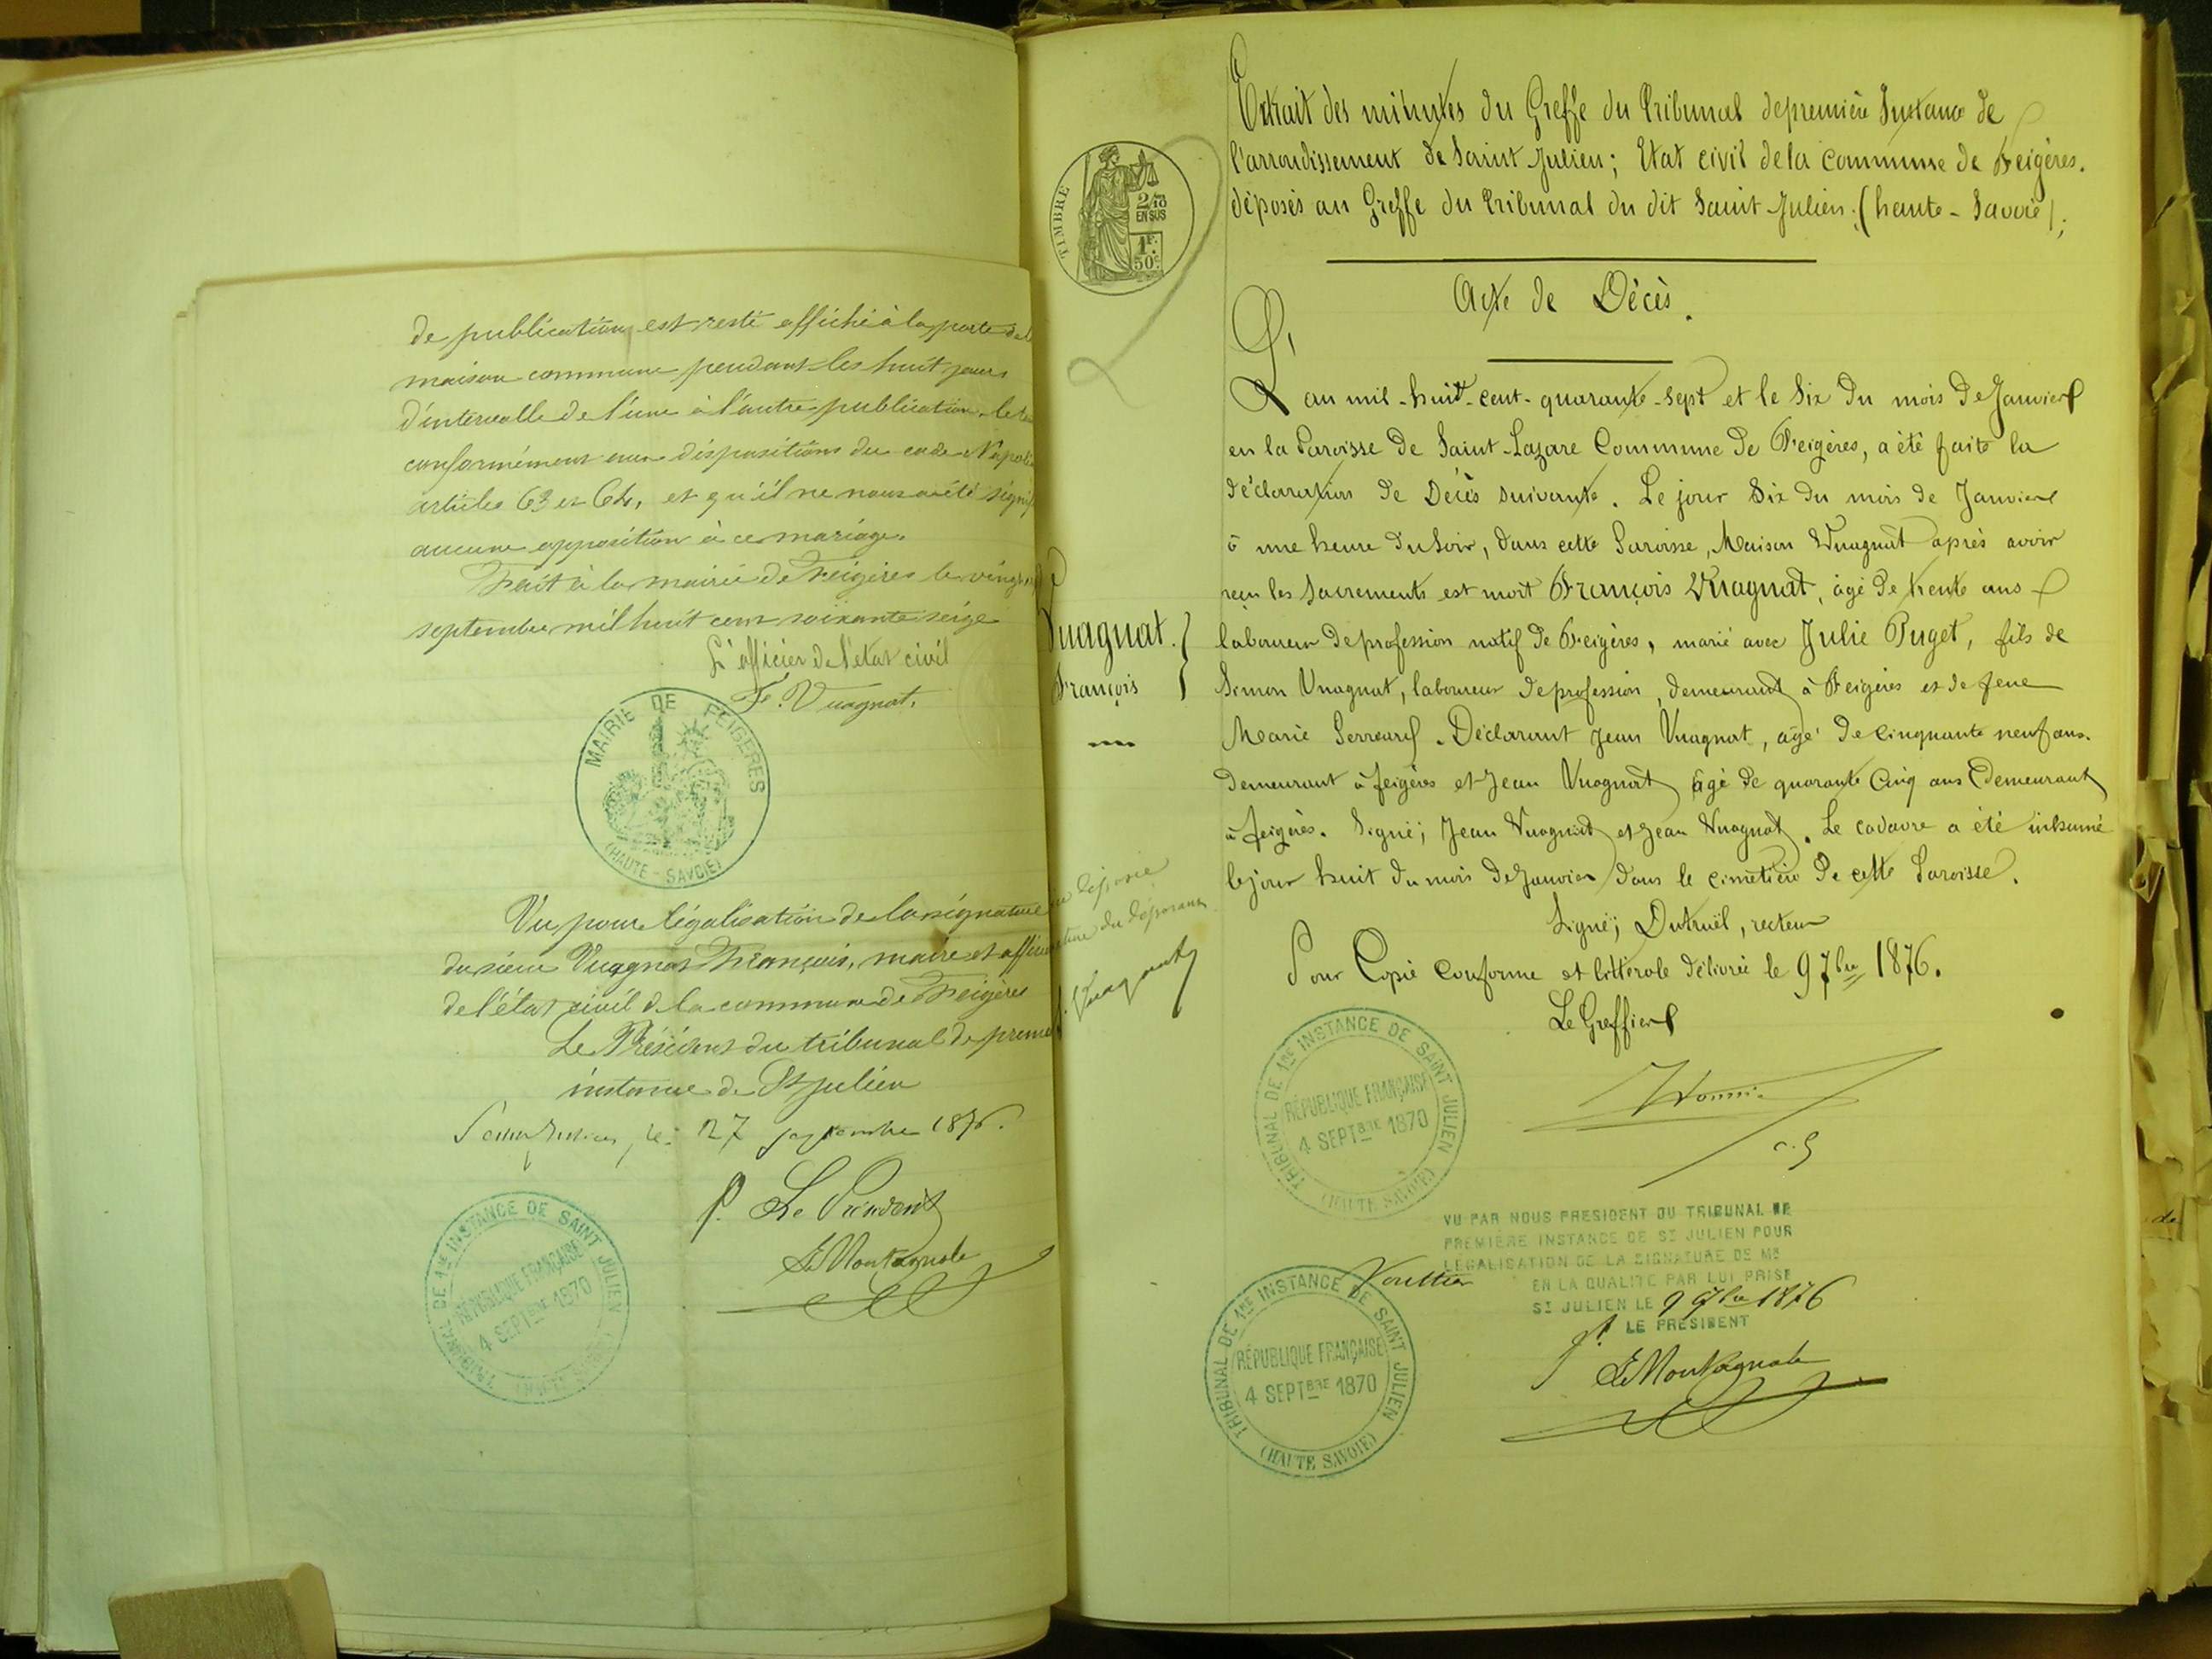 de publication est resté affiché à la porte de
maison commune pendant les huit jours
d'intervalle de l'une à l'autre publication, le
conformément aux dispositions du code Napol
articles 63 et 64, et qu'il ne nous a été signif
aucune opposition à ce mariage.
Fait à la mairie de Feigères le vingt
septembre mil huit cent soixante seize
L'officier de l'état civil
F. Vuagnat.
MAIRIE DE FEIGERES
(HAUTE - SAVOIE)
Vu pour légalisation de la signature
du sieur Vuagnat François, maire et offici
de l'état civil de la commune de Feigères
Le Président du tribunal de prem
instance de St Julien
Saint Julien, le 27 septembre 1876.
P. Le Président
TRIBUNAL DE 1RE INSTANCE DE SAINT JULIEN
RÉPUBLIQUE FRANÇAISE
4 SEPTBRE 1870
(HAUTE SAVOIE)
TIMBRE
2/10
EN SUS
1F.
50c
Extrait des minutes du Greffe du Tribunal de première Instance de
l'arrondissement de Saint Julien; Etat civil de la commune de Feigères.
déposés au Greffe du Tribunal du dit Saint Julien. (haute - Savoie);
Acte de Décès.
L'an mil-huit-cent-quarante-sept et le Six du mois de Janvier
en la Paroisse de Saint-Lazare Commune de Feigères, a été faite la
déclaration de Décès suivante. Le jour Six du mois de Janvier
à une heure du Soir, dans cette Paroisse, Maison Vuagnat après avoir
reçu les Sacrements est mort François Vuagnat, âgé de trente ans
laboureur de profession natif de Feigères, marié avec Julie Puget, fils de
Simon Vuagnat, laboureur de profession, demeurant à Feigères et de feue
Marie Serreard. Déclarant Jean Vuagnat, âgé de Cinquante neuf ans.
demeurant à feigères et Jean Vuagnat âgé de quarante Cinq ans demeurant
à feigères. Signé; Jean Vuagnat et Jean Vuagnat. Le cadavre a été inhumé
le jour huit du mois de Janvier dans le cimetière de cette Paroisse.
Signé; Dutruël, recteur
Pour Copie Conforme et littérale délivrée le 9 7bre 1876.
Le Greffier
Vuagnat
François
déposée
du déposant
Vuagnat
TRIBUNAL DE 1RE INSTANCE DE SAINT JULIEN
RÉPUBLIQUE FRANÇAISE
4 SEPTBRE 1870
(HAUTE SAVOIE)
VU PAR NOUS PRESIDENT DU TRIBUNAL DE
PREMIÈRE INSTANCE DE ST JULIEN POUR
LEGALISATION DE LA SIGNATURE DE ME
EN LA QUALITE PAR LUI PRISE
ST JULIEN LE 9 7bre 1876
LE PRESIDENT
TRIBUNAL DE 1RE INSTANCE DE SAINT JULIEN
RÉPUBLIQUE FRANÇAISE
4 SEPTBRE 1870
(HAUTE SAVOIE)
de